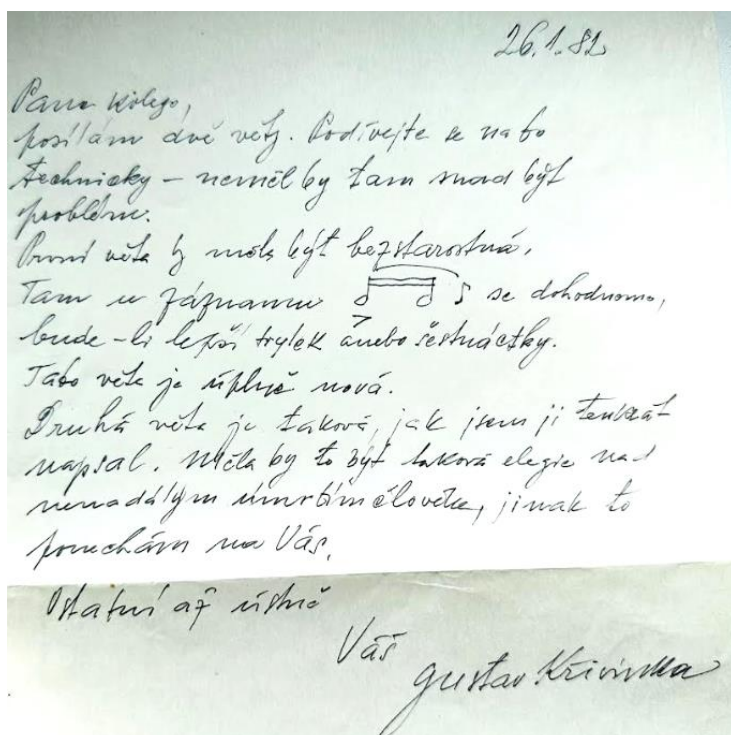 26.1.82
Pane kolego,
posílám dvě věty. Podívejte se na to
technicky – neměl by tam snad být
problém.
První věta by měla být bezstarostná.
Tam u záznamu se dohodneme,
bude-li lepší trylek anebo šestnáctky.
Tato věta je úplně nová.
Druhá věta je taková, jak jsem ji tenkrát
napsal. Měla by to být taková elegie nad
nenadálým úmrtím člověka, jinak to
ponechám na Vás.
Ostatní až ústně
Váš
Gustav Křivinka